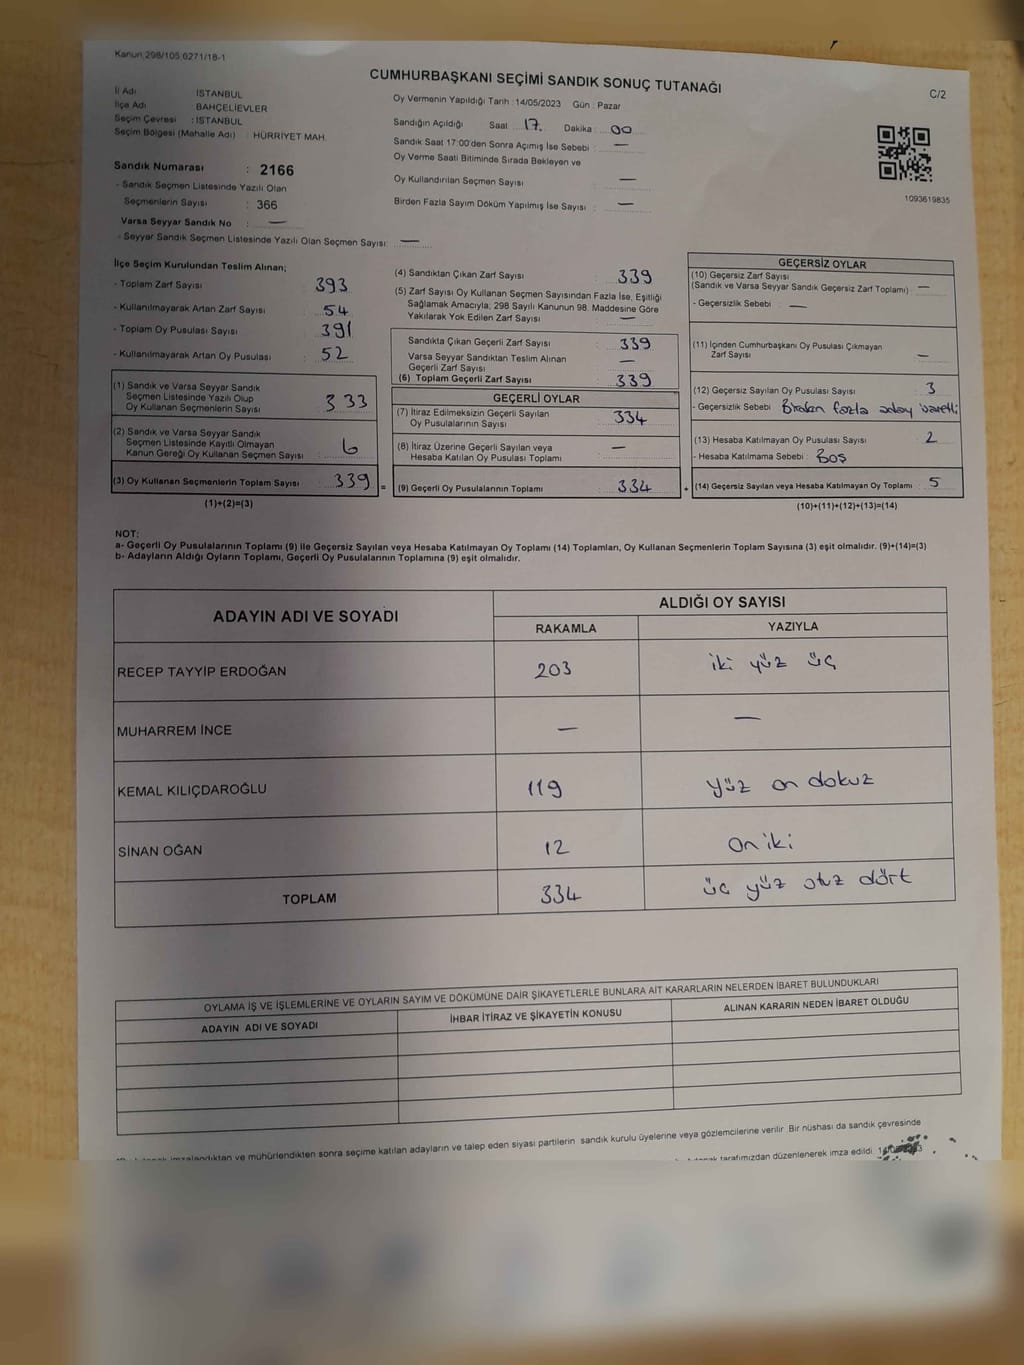 Kanun:298/105;6271/18-1
CUMHURBAŞKANI SEÇİMİ SANDIK SONUÇ TUTANAĞI
C/2
İl Adı İSTANBUL
İlçe Adı BAHÇELİEVLER
Seçim Çevresi : İSTANBUL
Seçim Bölgesi (Mahalle Adı) : HÜRRİYET MAH.
Sandık Numarası : 2166
- Sandık Seçmen Listesinde Yazılı Olan
Seçmenlerin Sayısı : 366
Varsa Seyyar Sandık No : —
- Seyyar Sandık Seçmen Listesinde Yazılı Olan Seçmen Sayısı: —
Oy Vermenin Yapıldığı Tarih : 14/05/2023 Gün : Pazar
Sandığın Açıldığı Saat 17. Dakika : 00
Sandık Saat 17:00'den Sonra Açımış İse Sebebi : —
Oy Verme Saati Bitiminde Sırada Bekleyen ve
Oy Kullandırılan Seçmen Sayısı —
Birden Fazla Sayım Döküm Yapılmış İse Sayısı : —
1093619835
İlçe Seçim Kurulundan Teslim Alınan;
- Toplam Zarf Sayısı : 393
- Kullanılmayarak Artan Zarf Sayısı : 54
- Toplam Oy Pusulası Sayısı : 391
- Kullanılmayarak Artan Oy Pusulası : 52
(1) Sandık ve Varsa Seyyar Sandık
Seçmen Listesinde Yazılı Olup
Oy Kullanan Seçmenlerin Sayısı : 333
(2) Sandık ve Varsa Seyyar Sandık
Seçmen Listesinde Kayıtlı Olmayan
Kanun Gereği Oy Kullanan Seçmen Sayısı : 6
(3) Oy Kullanan Seçmenlerin Toplam Sayısı : 339 =
(1)+(2)=(3)
(4) Sandıktan Çıkan Zarf Sayısı : 339
(5) Zarf Sayısı Oy Kullanan Seçmen Sayısından Fazla İse, Eşitliği
Sağlamak Amacıyla; 298 Sayılı Kanunun 98. Maddesine Göre
Yakılarak Yok Edilen Zarf Sayısı : —
Sandıkta Çıkan Geçerli Zarf Sayısı : 339
Varsa Seyyar Sandıktan Teslim Alınan
Geçerli Zarf Sayısı : —
(6) Toplam Geçerli Zarf Sayısı : 339
GEÇERLİ OYLAR
(7) İtiraz Edilmeksizin Geçerli Sayılan
Oy Pusulalarının Sayısı : 334
(8) İtiraz Üzerine Geçerli Sayılan veya
Hesaba Katılan Oy Pusulası Toplamı : —
(9) Geçerli Oy Pusulalarının Toplamı : 334 +
GEÇERSİZ OYLAR
(10) Geçersiz Zarf Sayısı
(Sandık ve Varsa Seyyar Sandık Geçersiz Zarf Toplamı) : —
- Geçersizlik Sebebi : —
(11) İçinden Cumhurbaşkanı Oy Pusulası Çıkmayan
Zarf Sayısı : —
(12) Geçersiz Sayılan Oy Pusulası Sayısı : 3
- Geçersizlik Sebebi : Birden fazla aday işaretli
(13) Hesaba Katılmayan Oy Pusulası Sayısı : 2
- Hesaba Katılmama Sebebi : Boş
(14) Geçersiz Sayılan veya Hesaba Katılmayan Oy Toplamı : 5
(10)+(11)+(12)+(13)=(14)
NOT:
a- Geçerli Oy Pusulalarının Toplamı (9) ile Geçersiz Sayılan veya Hesaba Katılmayan Oy Toplamı (14) Toplamları, Oy Kullanan Seçmenlerin Toplam Sayısına (3) eşit olmalıdır. (9)+(14)=(3)
b- Adayların Aldığı Oyların Toplamı, Geçerli Oy Pusulalarının Toplamına (9) eşit olmalıdır.
ADAYIN ADI VE SOYADI ALDIĞI OY SAYISI
RAKAMLA YAZIYLA
RECEP TAYYİP ERDOĞAN 203 iki yüz üç
MUHARREM İNCE — —
KEMAL KILIÇDAROĞLU 119 yüz on dokuz
SİNAN OĞAN 12 on iki
TOPLAM 334 üç yüz otuz dört
OYLAMA İŞ VE İŞLEMLERİNE VE OYLARIN SAYIM VE DÖKÜMÜNE DAİR ŞİKAYETLERLE BUNLARA AİT KARARLARIN NELERDEN İBARET BULUNDUKLARI
ADAYIN ADI VE SOYADI İHBAR İTİRAZ VE ŞİKAYETİN KONUSU ALINAN KARARIN NEDEN İBARET OLDUĞU
imzalandıktan ve mühürlendikten sonra seçime katılan adayların ve talep eden siyasi partilerin sandık kurulu üyelerine veya gözlemcilerine verilir. Bir nüshası da sandık çevresinde
tarafımızdan düzenlenerek imza edildi.